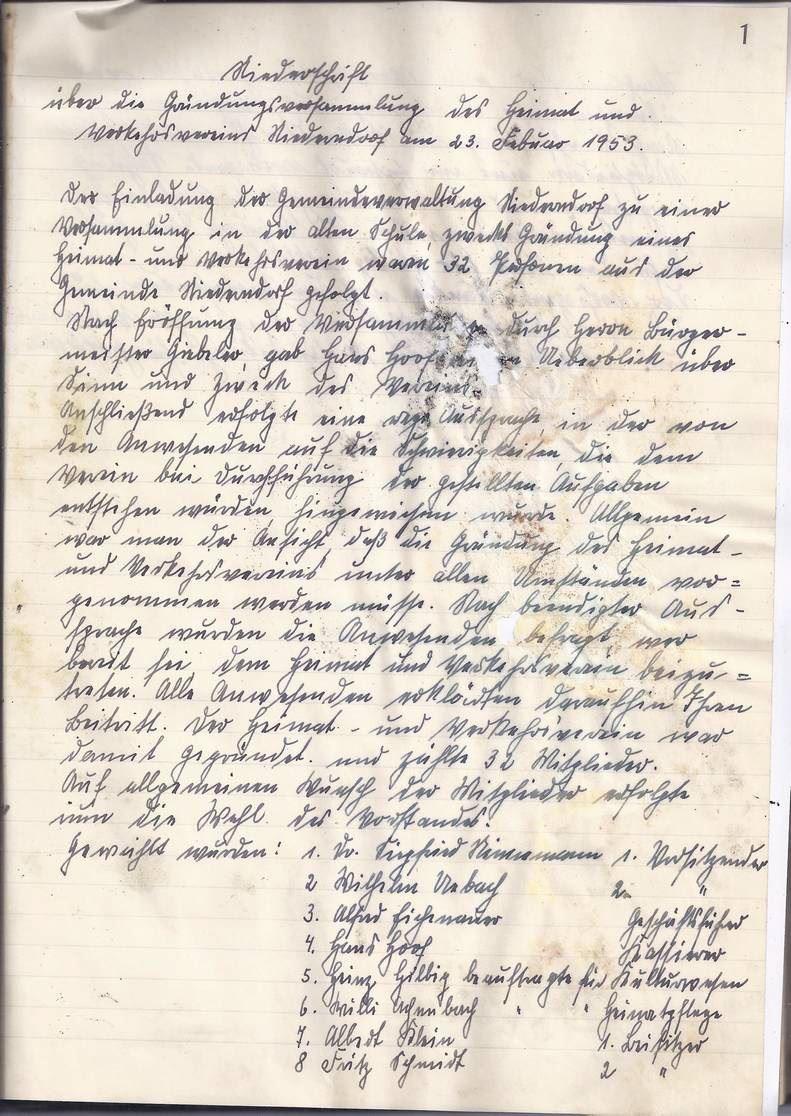 1
Niederschrift
über die Gründungsversammlung des Heimat und
Verkehrsvereins Niederndorf am 23. Februar 1953.
Der Einladung der Gemeindeverwaltung Niederndorf zu einer
Versammlung in der alten Schule, zwecks Gründung eines
Heimat- und Verkehrsverein waren 32 Personen aus der
Gemeinde Niederndorf gefolgt.
Nach Eröffnung der durch Herrn Bürger-
meister Giebeler, gab Hans Hoof Ueberblick über
Sinn und Zweck des Vereins.
Anschließend erfolgte eine rege Aussprache, in der von
den Anwesenden auf die Schwierigkeiten, die dem
Verein bei Durchführung der gestellten Aufgaben
entstehen würden, hingewiesen wurde. Allgemein
war man der Ansicht, daß die Gründung des Heimat-
und Verkehrsvereins unter allen Umständen vor=
genommen werden müsse. Nach beendigter Aus-
sprache wurden die Anwesenden befragt, wer
bereit sei dem Heimat und Verkehrsverein beizu=
treten. Alle Anwesenden erklärten daraufhin Ihren
Beitritt. Der Heimat- und Verkehrsverein war
damit gegründet. und zählte 32 Mitglieder.
Auf allgemeinen Wunsch der Mitglieder erfolgte
nun die Wahl des Vorstandes.
Gewählt wurden: 1. Dr. Siegfried 1. Vorsitzender
2 Wilhelm Uebach 2. "
3. Alfred Eichenauer Geschäftsführer
4. Hans Hoof Kassierer
5. Heinz Hilbig beauftragte für Kulturwesen
6. Willi Achenbach " " Heimatpflege
7. Albert Klein 1. Beisitzer
8 Fritz Schmidt 2 "